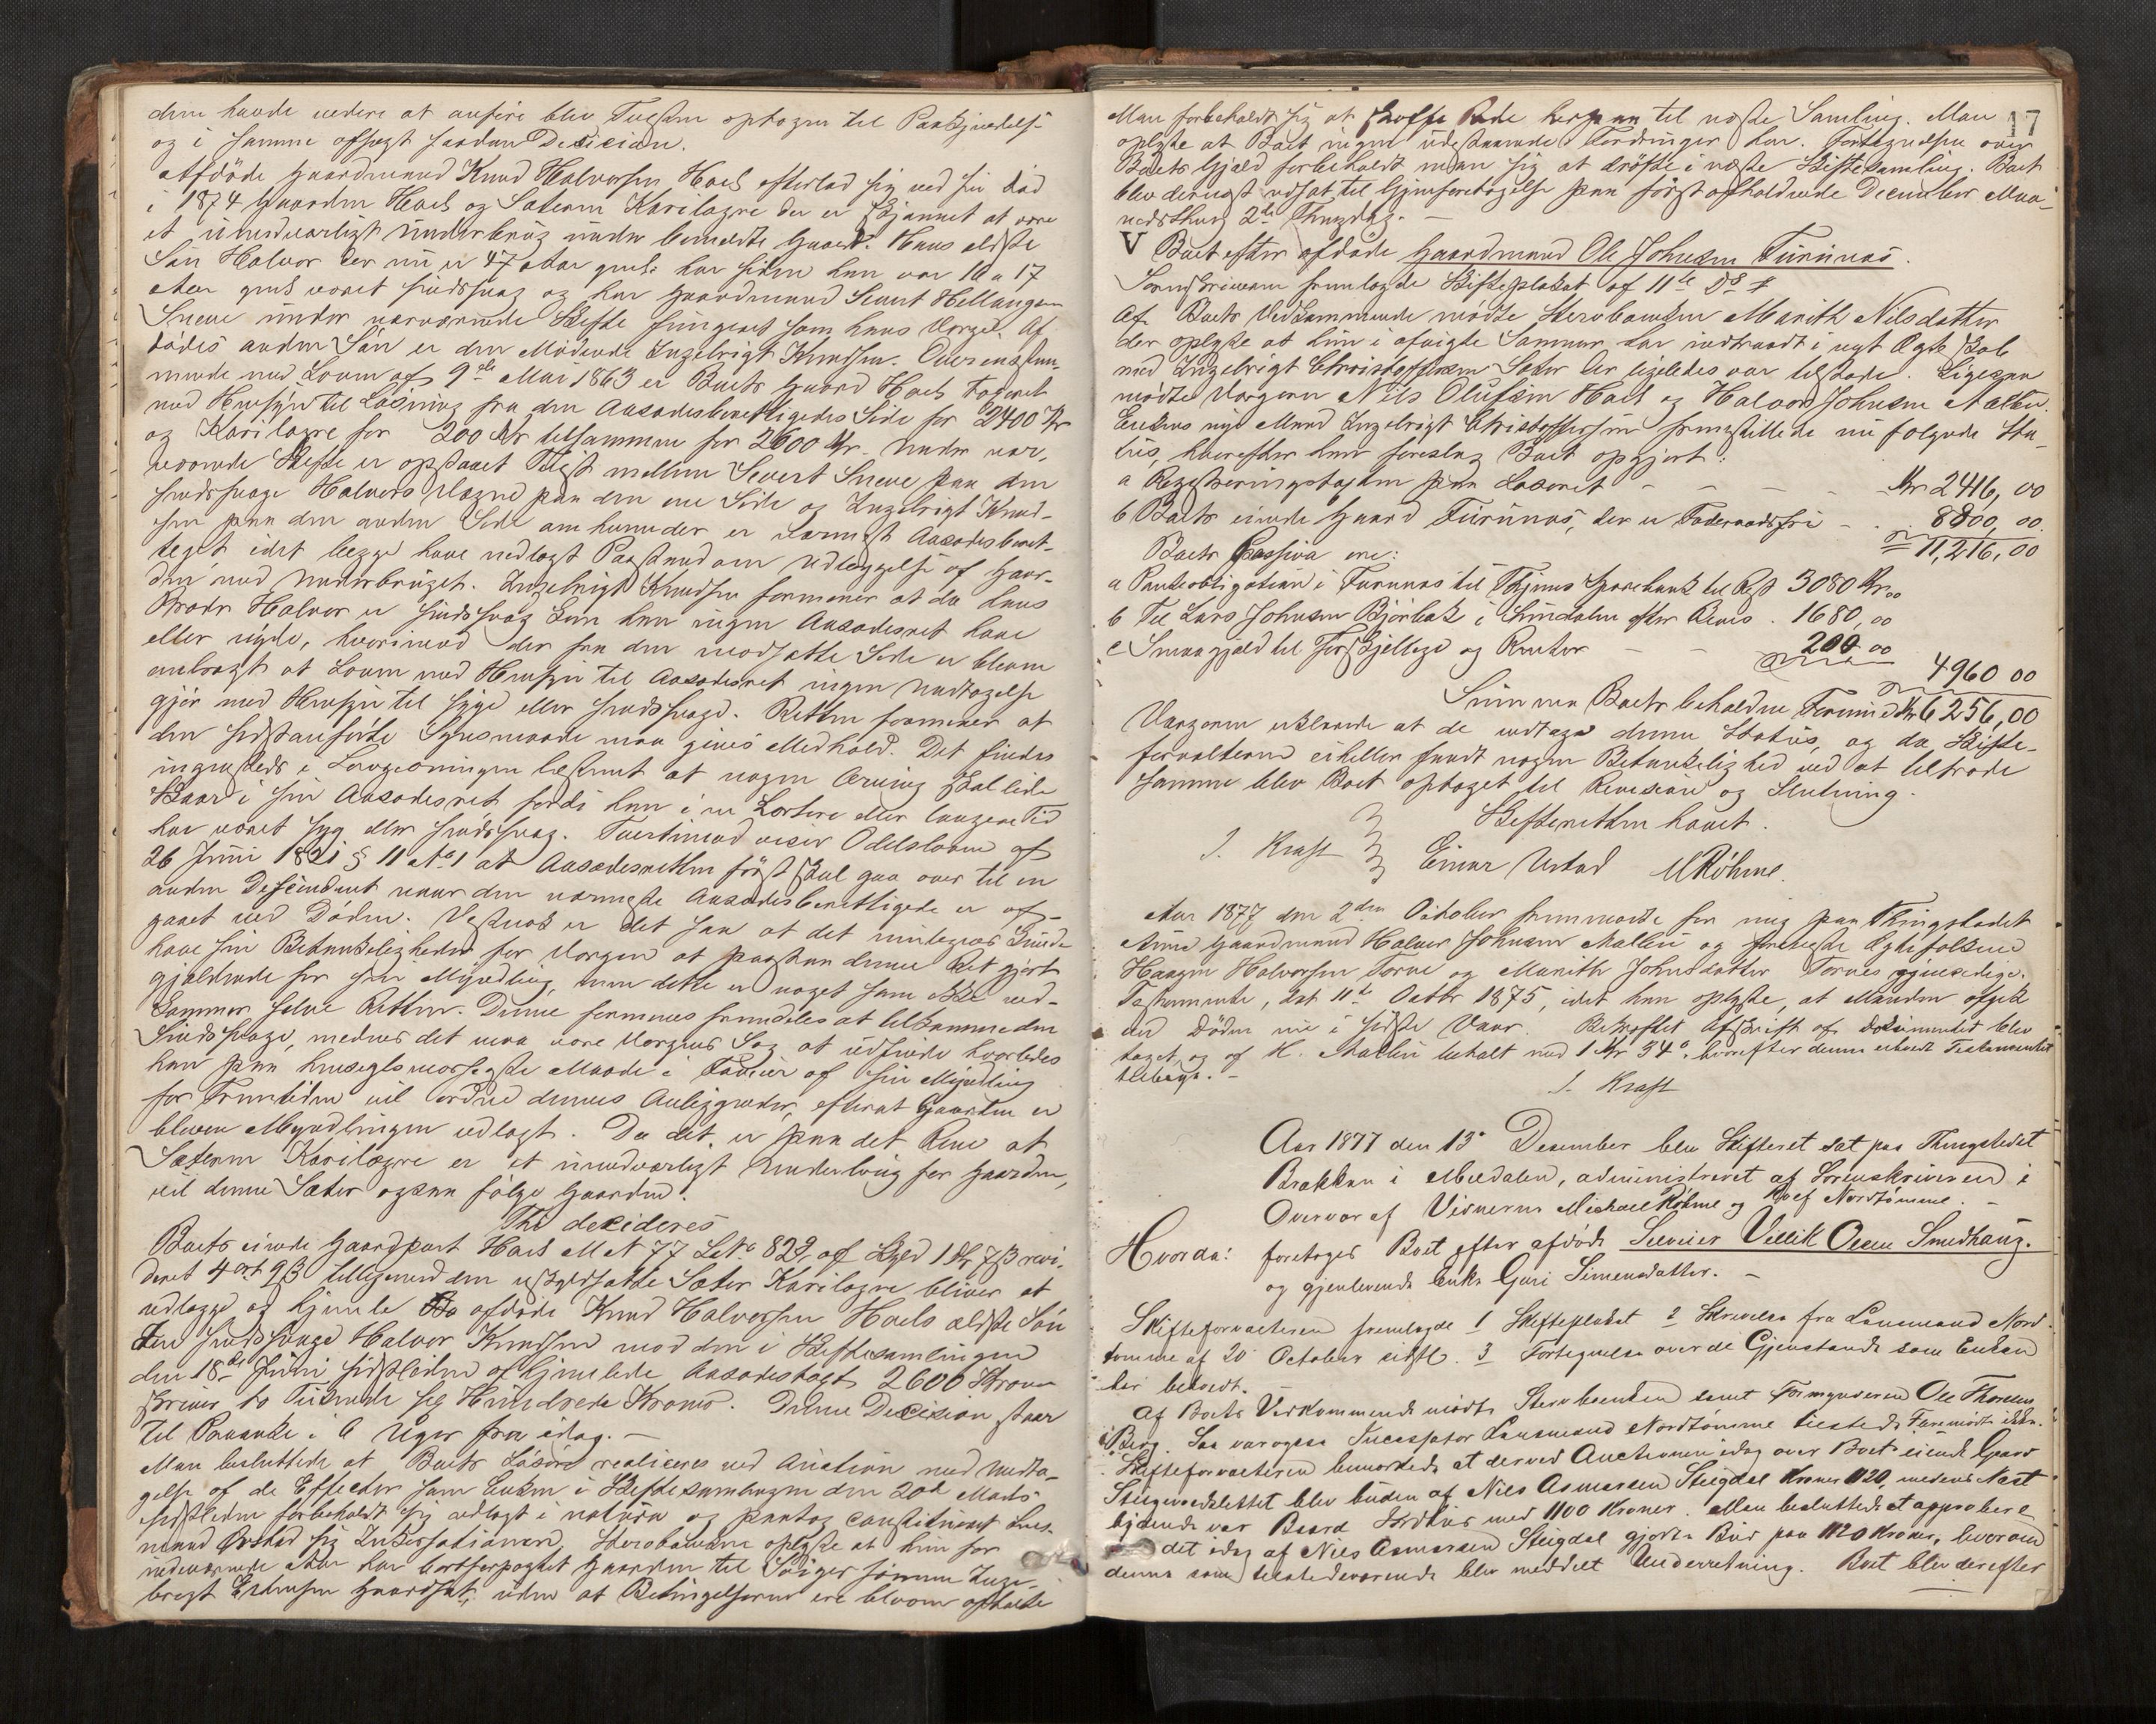 dem havde videre at anføre blev Tvisten optagen til Paakjendelse
og i samme afsagt saadan Decision.
Afdøde Gaardmand Knud Halvorsen Hoels efterlod sig ved sin Død
i 1874 Gaarden Hoels og Sæteren Karilægre der er skjønnet at være
et uundværligt Underbrug under bemeldte Gaard. Hans ældste
Søn Halvor der nu er 47 Aar gml. har siden han var 16 a 17
Aar gml været sindssvag og har Gaardmand Sivert Hellaugsen
Sneve under nærværende Skifte fungeret som hans Værge. Af
dødes anden Søn er den Mødende Ingebrigt Knudsen. Overensstem-
mende med Loven af 9de Mai 1863 er Boets Gaard Hoels taxeret
med Hensyn til Løsning fra den Aasædesberettigedes Side for 2400 Kr
og Karilægre for 200 Kr tilsammen for 2600 Kr. Under nær-
værende Skifte er opstaaet Tvist mellem Sivert Sneve paa den
sindssvage Halvors Vegne paa den ene Side og Ingebrigt Knud-
sen paa den anden Side om hvem der er nærmest Aasædesberet-
tiget, idet begge have nedlagt Paastand om Udlæggelse af Gaar-
den med Underbruget. Ingebrigt Knudsen formener at da hans
Broder Halvor er sindssvag kan han ingen Aasædesret have
eller nyde, hvorimod der fra den modsatte Side er bleven
anbragt at Loven med Hensyn til Aasædesret ingen Undtagelse
gjør med Hensyn til syge eller sindssvage. Retten formener at
den sidstanførte Synsmaade maa gives Medhold. Det findes
ingensteds i Lovgivningen bestemt at nogen Arving skal lide
Skaar i sin Aasædesret fordi han i en kortere eller længere Tid
har været syg eller sindssvag. Tvertimod viser Odelsloven af
26 Juni 1821 § 11 No 1 at Aasædesretten først skal gaa over til en
anden Descendent naar den nærmeste Aasædesberettigede er af-
gaaet ved Døden. Vistnok er det saa at det
have sin Betænkeligheder for Værgen at paastaa denne Ret gjort
gjældende for sin Myndling, men dette er noget som ikke ved-
kommer selve Retten. Denne formenes fremdeles at tilkomme den
Sindssvage, medens det maa være Værgens Sag at udfinde hvorledes
han paa hensigtsmæssigste Maade i Faveur af sin Myndling
for Fremtiden vil ordne dennes Anliggender, efterat Gaarden er
bleven Myndlingen udlagt. Da det er paa det Rene at
Sæteren Karilægre er et uundværligt Underbrug for Gaarden,
vil denne Sæter ogsaa følge Gaarden.
Thi decideres
Boets eiende Gaardpart Hoels M N 77 LNo 829 af Skyld 1 Dlr 7 ß revi-
deret 4 ort 9 ß tilligemed den uskyldsatte Sæter Karilægre bliver at
udlægge og hjemle afdøde Knud Halvorsen Hoels ældste Søn
den sindssvage Halvor Knudsen mod den i Skiftesamlingen
den 18de Juni sidstleden afhjemlede Aasædestaxt 2600 Kroner
skriver to Tusinde sex Hundrede Kroner. Denne Decision staar
til Paaanke i 6 Uger fra idag. —
Man besluttede at Boets Løsøre realiseres ved Auction med Undta-
gelse af de Effecter som Enken i Skiftesamlingen den 20de Marts
sidstleden forbeholdt sig udlagt i natura og paatog constitueret Lens-
mand Ørstad sig Incassationen. Sterboenken oplyste at hun for
indeværende Aar har bortforpagtet Gaarden til Svigersønnen Inge-
brigt Gaardsat, uden at Betingelserne ere blevne optalte
17
Man forbeholdt sig at skaffe Rede herpaa til næste Samling. Man
oplyste at Boet ingen udestaaende Fordringer har. Fortegnelsen over
Boets Gjæld forbeholdt man sig at drøfte i næste Skiftesamling. Boet
blev dernæst udsat til Gjenforetagelse paa først afholdende December Maa-
nedsthing 2den Thingdag. —
V Boet efter afdøde Gaardmand Ole Johnsen Furunæs.
Sorenskriveren fremlagde Skifteplakat af 11te ds #
Af Boets Vedkommende mødte Sterboenken Marith Nilsdatter
der oplyste at hun i afvigte Sommer har indtraadt i nyt Ægteskab
med Ingebrigt Christophersen Sæter der ligeledes var tilstede. Ligesaa
mødte Værgerne Nils Olufsen Hoel og Halvor Johnsen Mælen.
Enkens nye Mand Ingebrigt Christoffersen fremstillede nu følgende Sta-
tus, hvorefter han foreslog Boet opgjort:
a Registreringstaxten paa Løsøret - - - - Kr 2416,00
b Boets eiende Gaard Furunæs, der er Foderaadsfri - . 8800,00.
= 11,216,00
Boets Passiva ere:
a Panteobligation i Furunæs til Thjems Sparebank til Rest 3080 Kr 00
b Til Lars Johnsen Bjørbæk i Sundalen efter Bevis . 1680,00
c Smaagjæld til Forskjellige og Renter - - 200 00
4960 00
Summa Boets beholdne Formue Kr 6256,00
Værgerne erklærede at de vedtage denne Status, og da Skifte-
forvalteren eiheller fandt nogen Betænkelighed ved at tiltræde
samme blev Boet optaget til Revision og Slutning.
Skifteretten hævet.
J. Kraft Einar Ustad M Røhme.
Aar 1877 den 2den October fremmødte for mig paa Thingstedet
Aune Gaardmand Halvor Johnsen Mælen og foreviste Ægtefolkene
Haagen Halvorsen Torve og Marith Johnsdatter Torves gjensidige
Testamente, dat 11te Octbr 1875, idet han oplyste, at Manden afgik
ved Døden nu i sidste Vaar. Bekræftet Afskrift af Documentet blev
taget, og af H. Mælen betalt med 1 Kr 34 ø, hvorefter denne erholdt Testamentet
tilbage. —
J. Kraft
Aar 1877 den 13de December blev Skifteret sat paa Thingstedet
Brækken i Meldalen, administreret af Sorenskriveren i
Overvær af Vidnerne Michael Røhme og Roef Nordtømme. —
Hvorda: foretoges Boet efter afdøde Sverier Veslik Olsen Smedhaug.
og gjenlevende Enke Guri Simensdatter. —
Skifteforvalteren fremlagde 1 Skifteplakat 2 Skrivelse fra Lensmand Nord-
tømme af 20 October sidstl. 3 Fortegnelse over de Gjenstande som Enken
har beholdt.
Af Boets Vedkommende mødte Sterboenken samt Formynderen Ole Thoresen
Berg. Saa var ogsaa Incassator Lensmand Nordtømme tilstede. Faremødte ikke.
Skifteforvalteren bemærkede at der ved Auctionen idag over Boets eiende Gaard
Steigvoldslettet blev buden af Nils Asmarsen Steigdal Kroner 1120, medens Næst
bydende var Baard Jordhus med 1100 Kroner. Man besluttede at approbere
det idag af Nils Asmarsen Steigdal gjorte Bud paa 1120 Kroner, hvorom
denne som tilstedeværende blev meddelt Underretning. Boet blev derefter